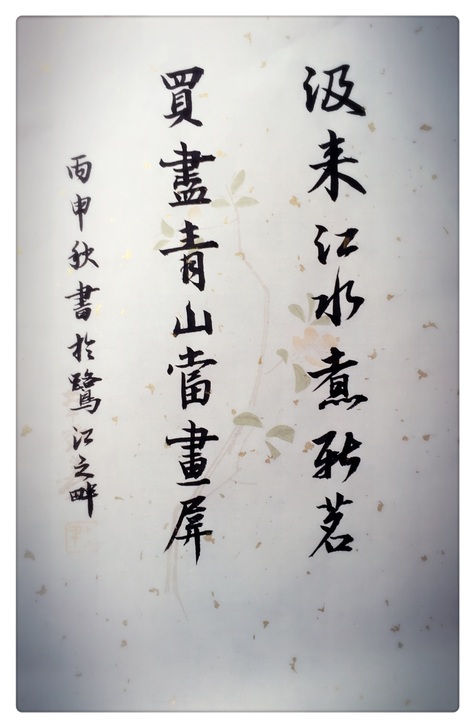 汲来江水煮新茗
買盡青山當畫屏
丙申秋書於鷺江之畔